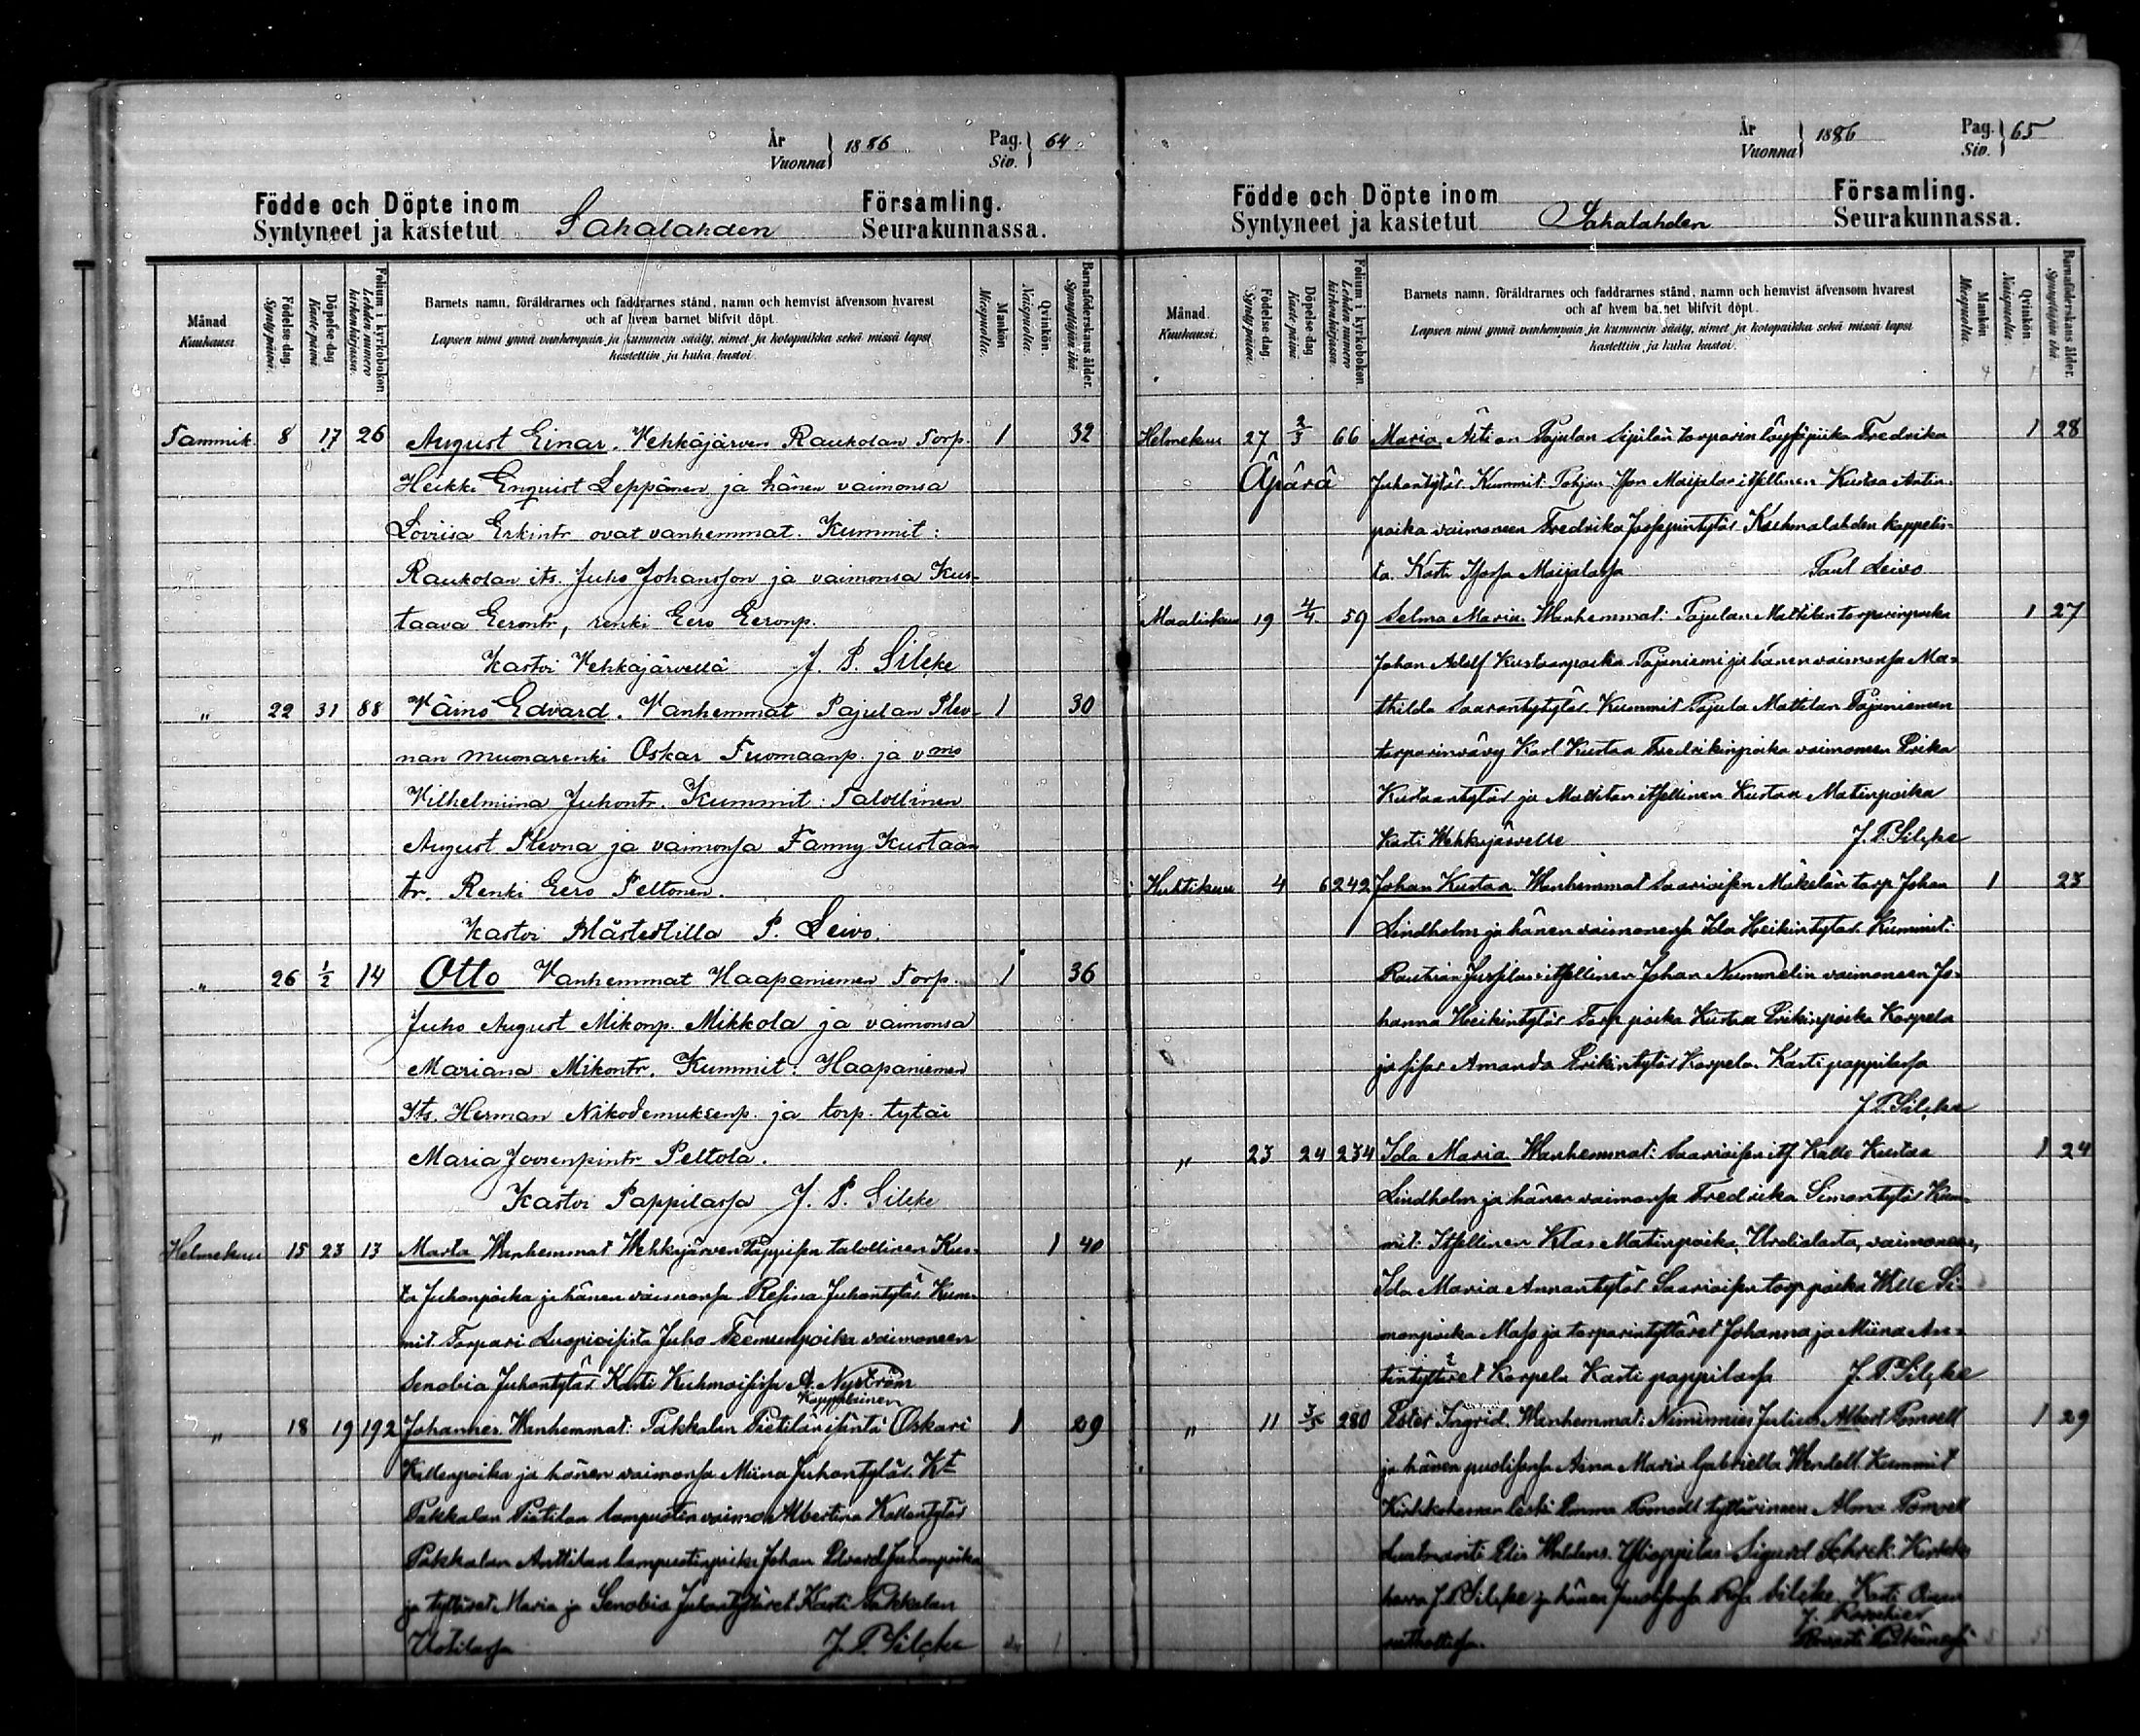 År
Vuonna } 1886 Pag.
Siv. } 64
Födde och Döpte inom Församling.
Syntyneet ja kastetut Sahalahden Seurakunnassa.
Månad
Kuukausi.
Födelse dag.
Synty päivä.
Döpelse dag
Kaste päivä
Folium i kyrkoboken
Lehden numero kirkonkirjassa.
Barnets namn, föräldrarnes och faddrarnes stånd, namn och hemvist äfvensom hvarest
och af hvem barnet blifvit döpt.
Lapsen nimi ynnä vanhempain ja kummein sääty, nimet ja kotopaikka sekä missä lapsi
kastettiin ja kuka kastoi.
Mankön
Miespuolia.
Qvinkön.
Naispuolia.
Barnaföderskans ålder.
Synnyttäjän ikä.
Tammik. 8 17 26 August Einar. Vehkäjärven Raukolan Torp. 1 32
Heikki Enquist Leppänen ja hänen vaimonsa
Loviisa Erkintr. ovat vanhemmat. Kummit:
Raukolan its. Juho Johansson ja vaimonsa Kus-
taava Eerontr, renki Eero Eeronp.
Kastoi Vehkäjärvellä J. P. Silcke
" 22 31 88 Väinö Edvard. Vanhemmat Pajulan Plev- 1 30
nan muonarenki Oskar Tuomaanp. ja vmo
Vilhelmiina Juhontr. Kummit: Talollinen
August Plevna ja vaimonsa Fanny Kustaan
tr. Renki Eero Peltonen.
Kastoi P. Leivo.
" 26 1/2 14 Otto Vanhemmat Haapaniemen Torp. 1 36
Juho August Mikonp. Mikkola ja vaimonsa
Mariana Mikontr. Kummit: Haapaniemen
Its. Herman Nikodemuksenp. ja torp. tytär
Maria Joosenpintr Peltola.
Kastoi Pappilassa J. P. Silcke
Helmekuu 15 23 13 Marta Wanhemmat Wehkajärven Pappisen talollinen Kus- 1 40
ta Juhonpoika ja hänen vaimonsa Resina Juhontytär Kum-
mit Torpari Juho Teemunpoika vaimoneen
Senobia Juhontytär Kasti A. Nyström
Kappalainen
" 18 19 192 Johannes Wanhemmat: Pakkalan Pietilän isäntä Oskari 1 29
Kallenpoika ja hänen vaimonsa Miina Juhontytär Kt
Pakkalan Pietilan lampuotin vaimo Albertina Kallentytär
Pakkalan Anttilan lampuotinpoika Johan Edvard Juhonpoika
ja tyttäret Maria ja Senobia Juhontyttäret Kasti Pakkalan
J. P. Silcke
År
Vuonna } 1886 Pag.
Siv. } 65
Födde och Döpte inom Församling.
Syntyneet ja kastetut Sahalahden Seurakunnassa.
Månad
Kuukausi.
Födelse dag
Synty päivä.
Döpelse dag
Kaste päivä.
Folium i kyrkoboken.
Lehden numero kirkonkirjassa.
Barnets namn, föräldrarnes och faddrarnes stånd, namn och hemvist äfvensom hvarest
och af hvem barnet blifvit döpt.
Lapsen nimi ynnä vanhempain ja kummein sääty, nimet ja kotopaikka sekä missä lapsi
kastettiin ja kuka kastoi.
Mankön
Miespuolia.
Qvinkön.
Naispuolia.
Barnaföderskans ålder.
Synnyttäjän ikä.
Helmekuu 27 2/3 66 Maria. Äiti on Pajulan Sipilän torparin piika Fredrika 1 28
Äpärä Juhontytär Kummit Pohjan Ison Maijalan itsellinen Kustaa Antin-
poika vaimoneen Fredrika Josefpintytär Kuhmalahden kappelis-
ta. Kasti Isossa Maijalassa Paul Leivo
Maaliskuu 19 4/4 59 Selma Maria. Wanhemmat: Pajulan Mattilan torparinpoika 1 27
Johan Adolf Kustaanpoika Pajaniemi ja hänen vaimonsa Ma-
thilda Kummit Pajula Mattilan Pajaniemen
torparinvävy Karl Kustaa Fredrikinpoika vaimoneen Erika
Kustaantytär ja Mattilan itsellinen Kustaa Matinpoika
Kasti Wehkajärvelle J. P. Silcke
Huhtikuu 4 6 242 Johan Kustaa. Wanhemmat Saarioisen Mäkelän torp Johan 1 23
Lindholm ja hänen vaimonensa Ida Heikintytär. Kummit:
Rautian Jussilan itsellinen Johan Nummelin vaimoneen Jo-
hanna Heikintytär Torp poika Kustaa Erikinpoika Korpela
ja sisar Amanda Erikintytär Korpela. Kasti pappilassa
J. P. Silcke
" 23 24 234 Ida Maria Wanhemmat: Saarioisen its Kalle Kustaa 1 24
Lindholm ja hänen vaimonsa Fredrika Simontytär Kum-
mit: Itsellinen Klas Matinpoika, Urdialasta, vaimoneen,
Ida Maria Annantytär Saarioisen torp poika Wille Si-
monpoika ja torparintyttäret Johanna ja Miina An-
tintyttäret Korpela Kasti pappilassa J. P. Silcke
" 11 3/5 280 Ester Ingrid. Wanhemmat: Nimismies Julius Albert Pomoell 1 29
ja hänen puolisonsa Aina Maria Gabriella Wendell Kummit
Kirkkoherran leski Emma Pomoell tyttärineen Alma Pomoell
Ylioppilas Sigurd Schrek. Kirkko-
herra J. P. Silcke ja hänen puolisonsa Rosa Silcke. Kasti